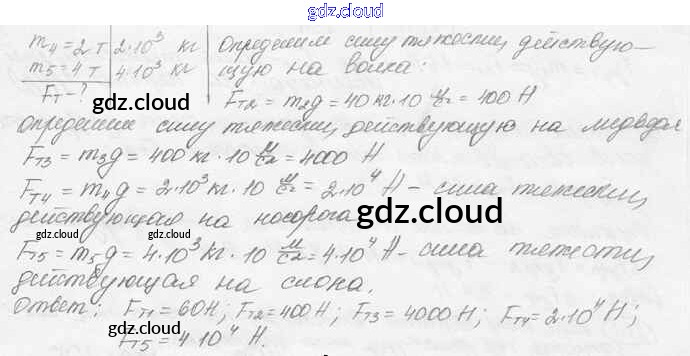 gdz.cloud
m₄ = 2 т | 2·10³ кг | Определим силу тяжести, действую-
m₅ = 4 т | 4·10³ кг | щую на волка:
Fт - ? | Fт2 = m₂g = 40 кг·10 м/с² = 400 Н
gdz.cloud
определим силу тяжести, действующую на медведя
Fт3 = m₃g = 400 кг·10 м/с² = 4000 Н
Fт4 = m₄g = 2·10³ кг·10 м/с² = 2·10⁴ Н - сила тяжести,
действующая на носорога
gdz.cloud
gdz.cloud
gdz.cloud
Fт5 = m₅g = 4·10³ кг·10 м/с² = 4·10⁴ Н - сила тяжести,
действующая на слона.
Ответ: Fт1 = 60Н; Fт2 = 400Н; Fт3 = 4000Н; Fт4 = 2·10⁴ Н;
gdz.cloud
Fт5 = 4·10⁴ Н.
gdz.cloud
gdz.cloud